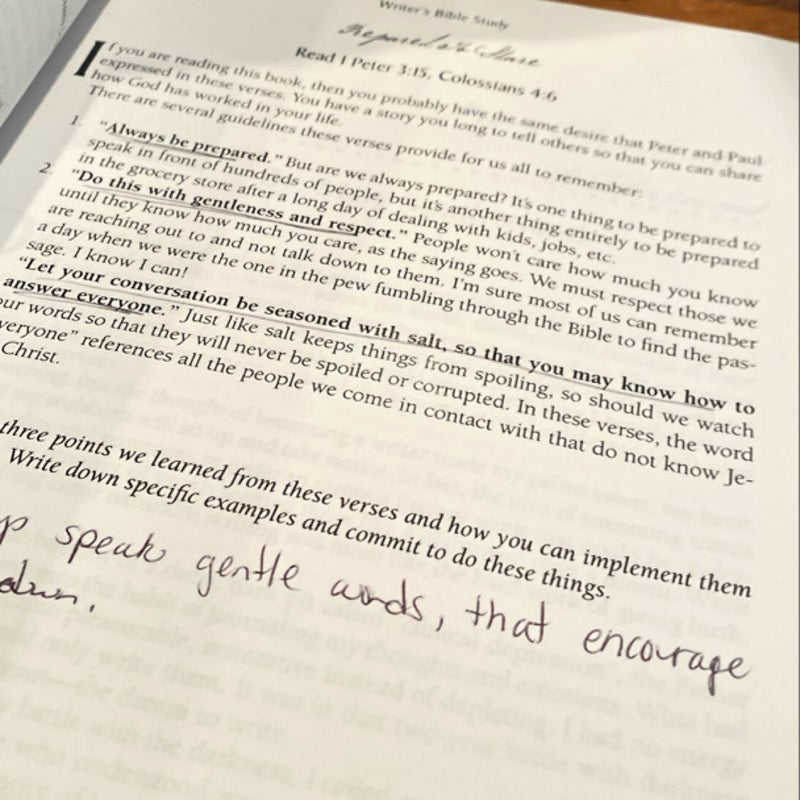 Writer's Bible Study
Prepared to Share
Read 1 Peter 3:15, Colossians 4:6
If you are reading this book, then you probably have the same desire that Peter and Paul
expressed in these verses. You have a story you long to tell others so that you can share
how God has worked in your life.
There are several guidelines these verses provide for us all to remember:
1. "Always be prepared." But are we always prepared? It's one thing to be prepared to
speak in front of hundreds of people, but it's another thing entirely to be prepared
in the grocery store after a long day of dealing with kids, jobs, etc.
2. "Do this with gentleness and respect." People won't care how much you know
until they know how much you care, as the saying goes. We must respect those we
are reaching out to and not talk down to them. I'm sure most of us can remember
a day when we were the one in the pew fumbling through the Bible to find the pas-
sage. I know I can!
"Let your conversation be seasoned with salt, so that you may know how to
answer everyone." Just like salt keeps things from spoiling, so should we watch
our words so that they will never be spoiled or corrupted. In these verses, the word
veryone" references all the people we come in contact with that do not know Je-
Christ.
three points we learned from these verses and how you can implement them
Write down specific examples and commit to do these things.
p speak gentle words, that encourage